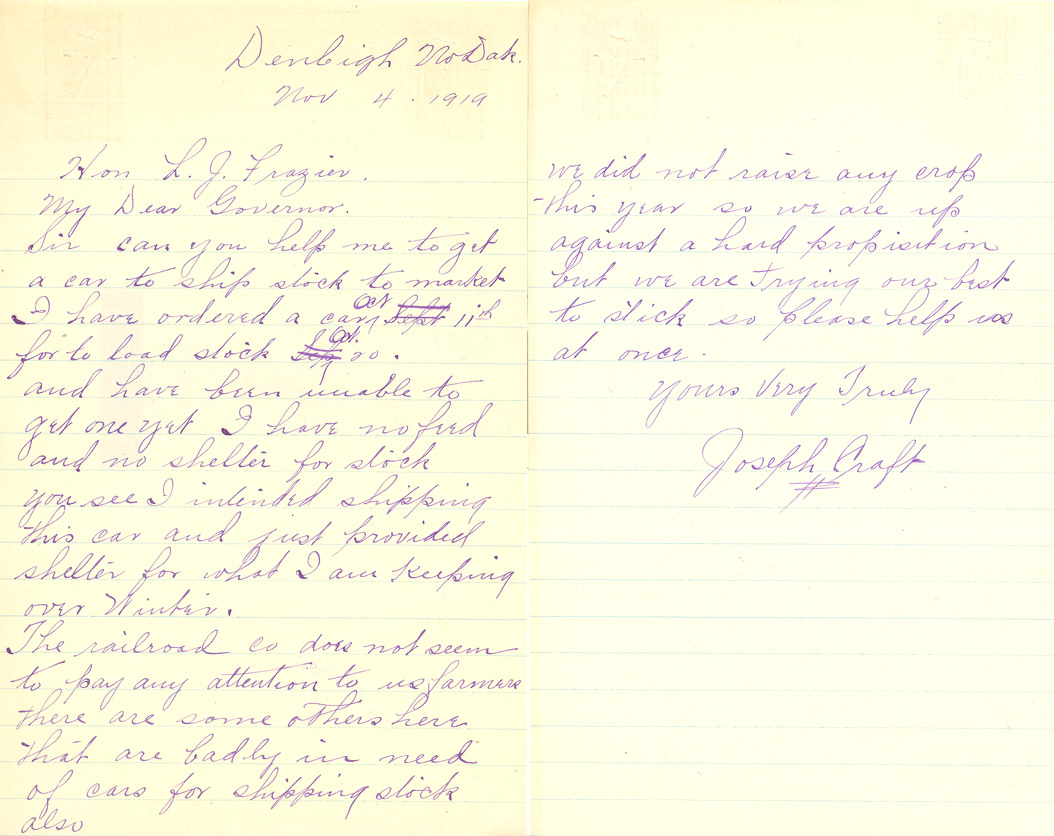 Denbigh NoDak.
Nov 4 - 1919
Hon L. J. Frazier.
My Dear Governor.
Sir can you help me to get
a car to ship stock to market
I have ordered a car Oct ~~Sept~~ 11th
for to load stock ~~Sep~~ Oct. 20.
and have been unable to
get one yet I have no feed
and no shelter for stock
you see I intended shipping
this car and just provided
shelter for what I am Keeping
over Winter.
The railroad co does not seem
to pay any attention to us farmers
there are some others here
that are badly in need
of cars for shipping stock
also
we did not raise any crop
this year so we are up
against a hard propisition
but we are Trying our best
to stick so please help us
at once.
Yours Very Truly
Joseph Craft